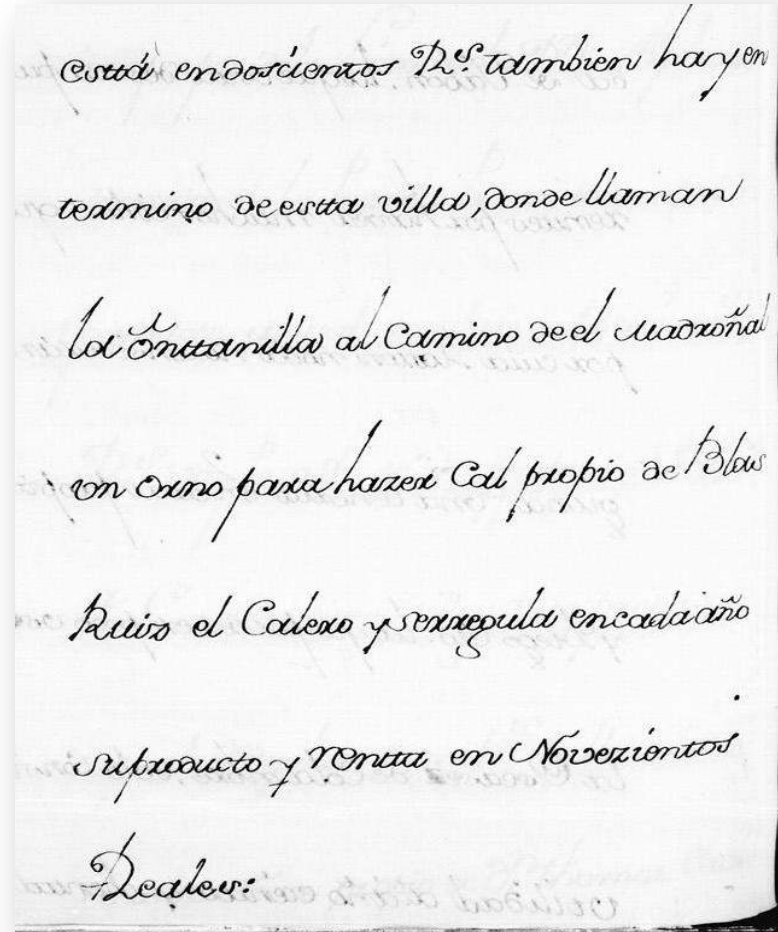 esttá en doscientos R.s tambien hay en
termino de estta villa, donde llaman
la õnttanilla al Camino de el Madroñal
vn Orno para hazer Cal propio de Blas
Ruiz el Calero y serregula en cada año
su producto y rentta en Novezientos
Reales: